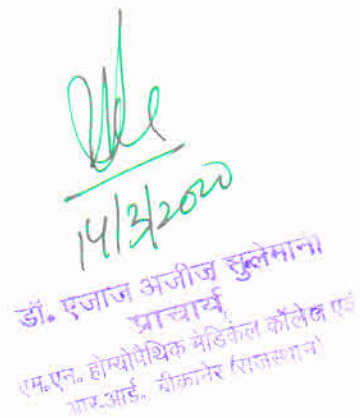 14/3/2020
डॉ. एजाज अजीज सुलेमानी
प्राचार्य
एम.एन. होम्योपैथिक मेडिकल कॉलेज एवं
आर.आई. बीकानेर (राजस्थान)